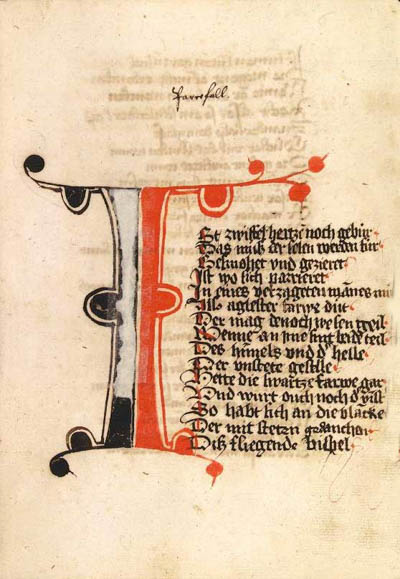 Parcifall
I
St zwiffel hertze noch gebur
Das muß der selen werden sur
Gesmehet vnd gezieret
Ist wo sich parrieret
In eines verzageten mānes
Als aglester farwe dut
Der mag denoch wesen geil
Wenne an ime sint beide teil
Des himels vnd d' helle
Der vnstete geselle
Hette die swartze farwe gar
Vnd wurt ouch noch d'
So habt sich an die blācke
Der mit stetn gedancken
Diß fliegende bishel